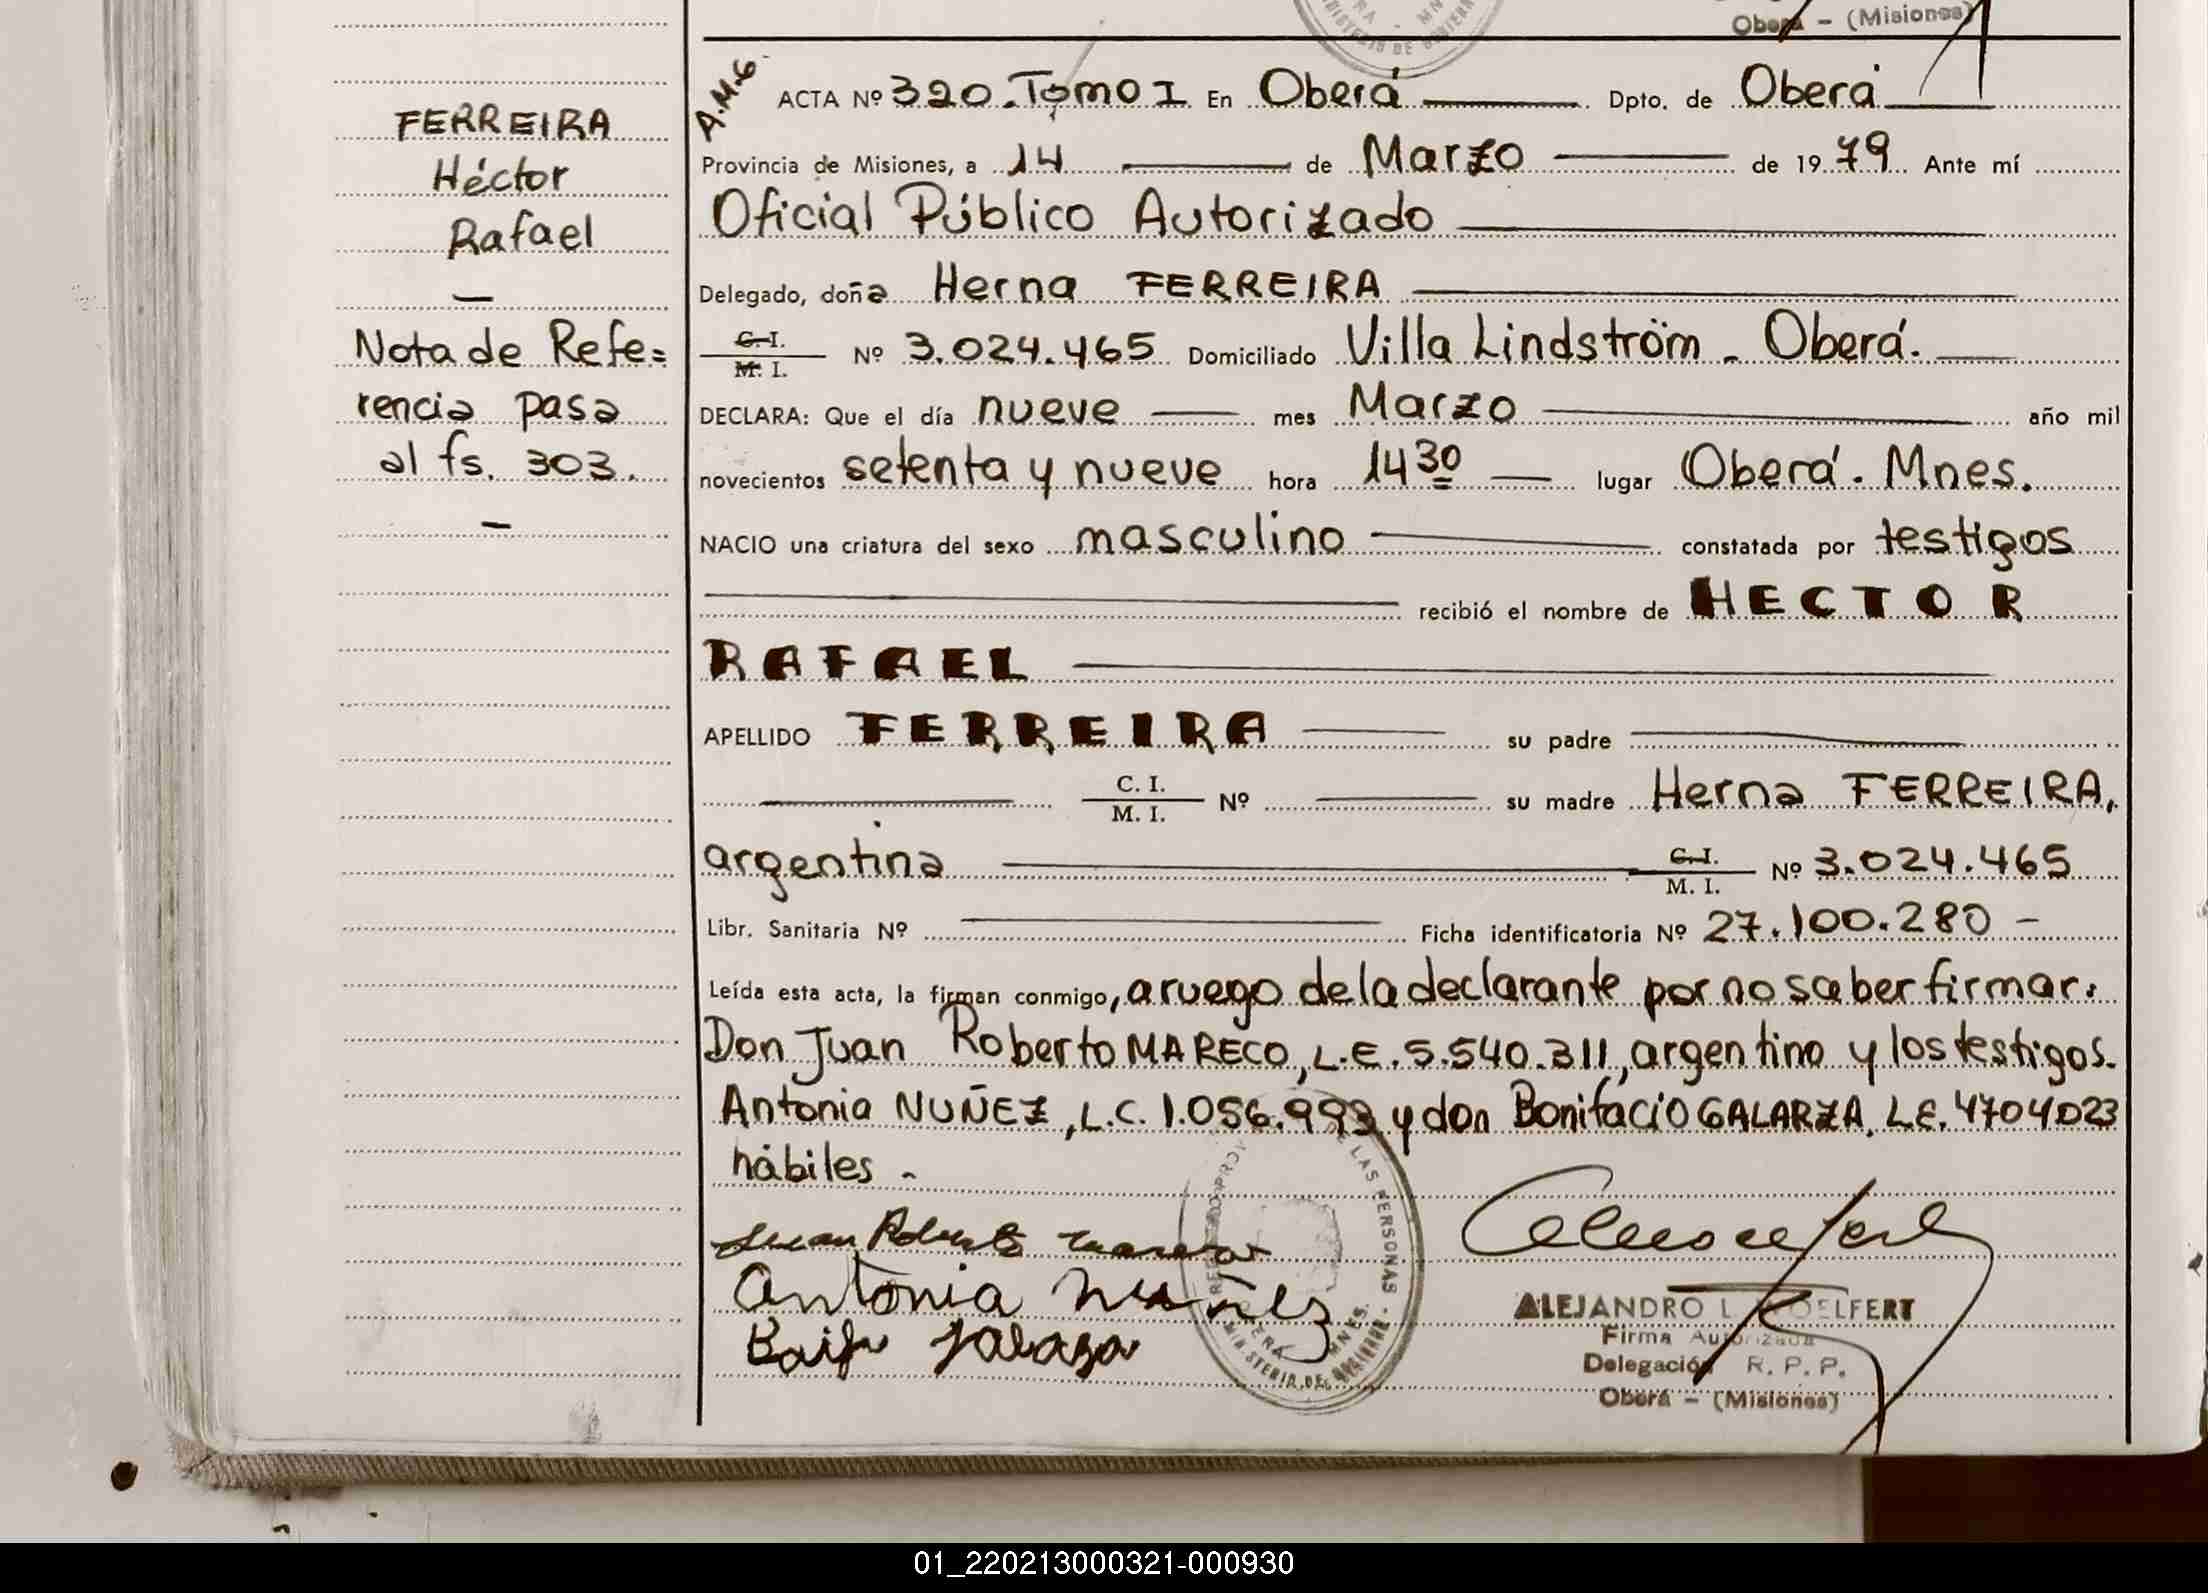 Oberá - (Misiones)
A.M.G
FERREIRA
Héctor
Rafael
Nota de Refe=
rencia pasa
al fs. 303.
ACTA Nº 320. Tomo I En Oberá Dpto. de Oberá
Provincia de Misiones, a 14 de Marzo de 1979 Ante mí
Oficial Público Autorizado
Delegado, doña Herna FERREIRA
C. I.
M. I. Nº 3.024.465 Domiciliado Villa Lindström - Oberá.
DECLARA: Que el día nueve mes Marzo año mil
novecientos setenta y nueve hora 14 30 lugar Oberá. Mnes.
NACIO una criatura del sexo masculino constatada por testigos
recibió el nombre de HECTOR
RAFAEL
APELLIDO FERREIRA su padre
C. I.
M. I. Nº su madre Herna FERREIRA,
argentina C. I.
M. I. Nº 3.024.465
Libr. Sanitaria Nº Ficha identificatoria Nº 27.100.280 -
Leída esta acta, la firman conmigo, a ruego de la declarante por no saber firmar.
Don Juan Roberto MARECO, L.E. 5.540.311, argentino y los testigos.
Antonia NUÑEZ, L.C. 1.056.993 y don Bonifacio GALARZA. L.E. 4704023
hábiles -
Juan Roberto Mareco
Antonia Nuñez
ALEJANDRO L.
Firma Autorizada
Delegación R. P. P.
Oberá - (Misiones)
01_220213000321-000930